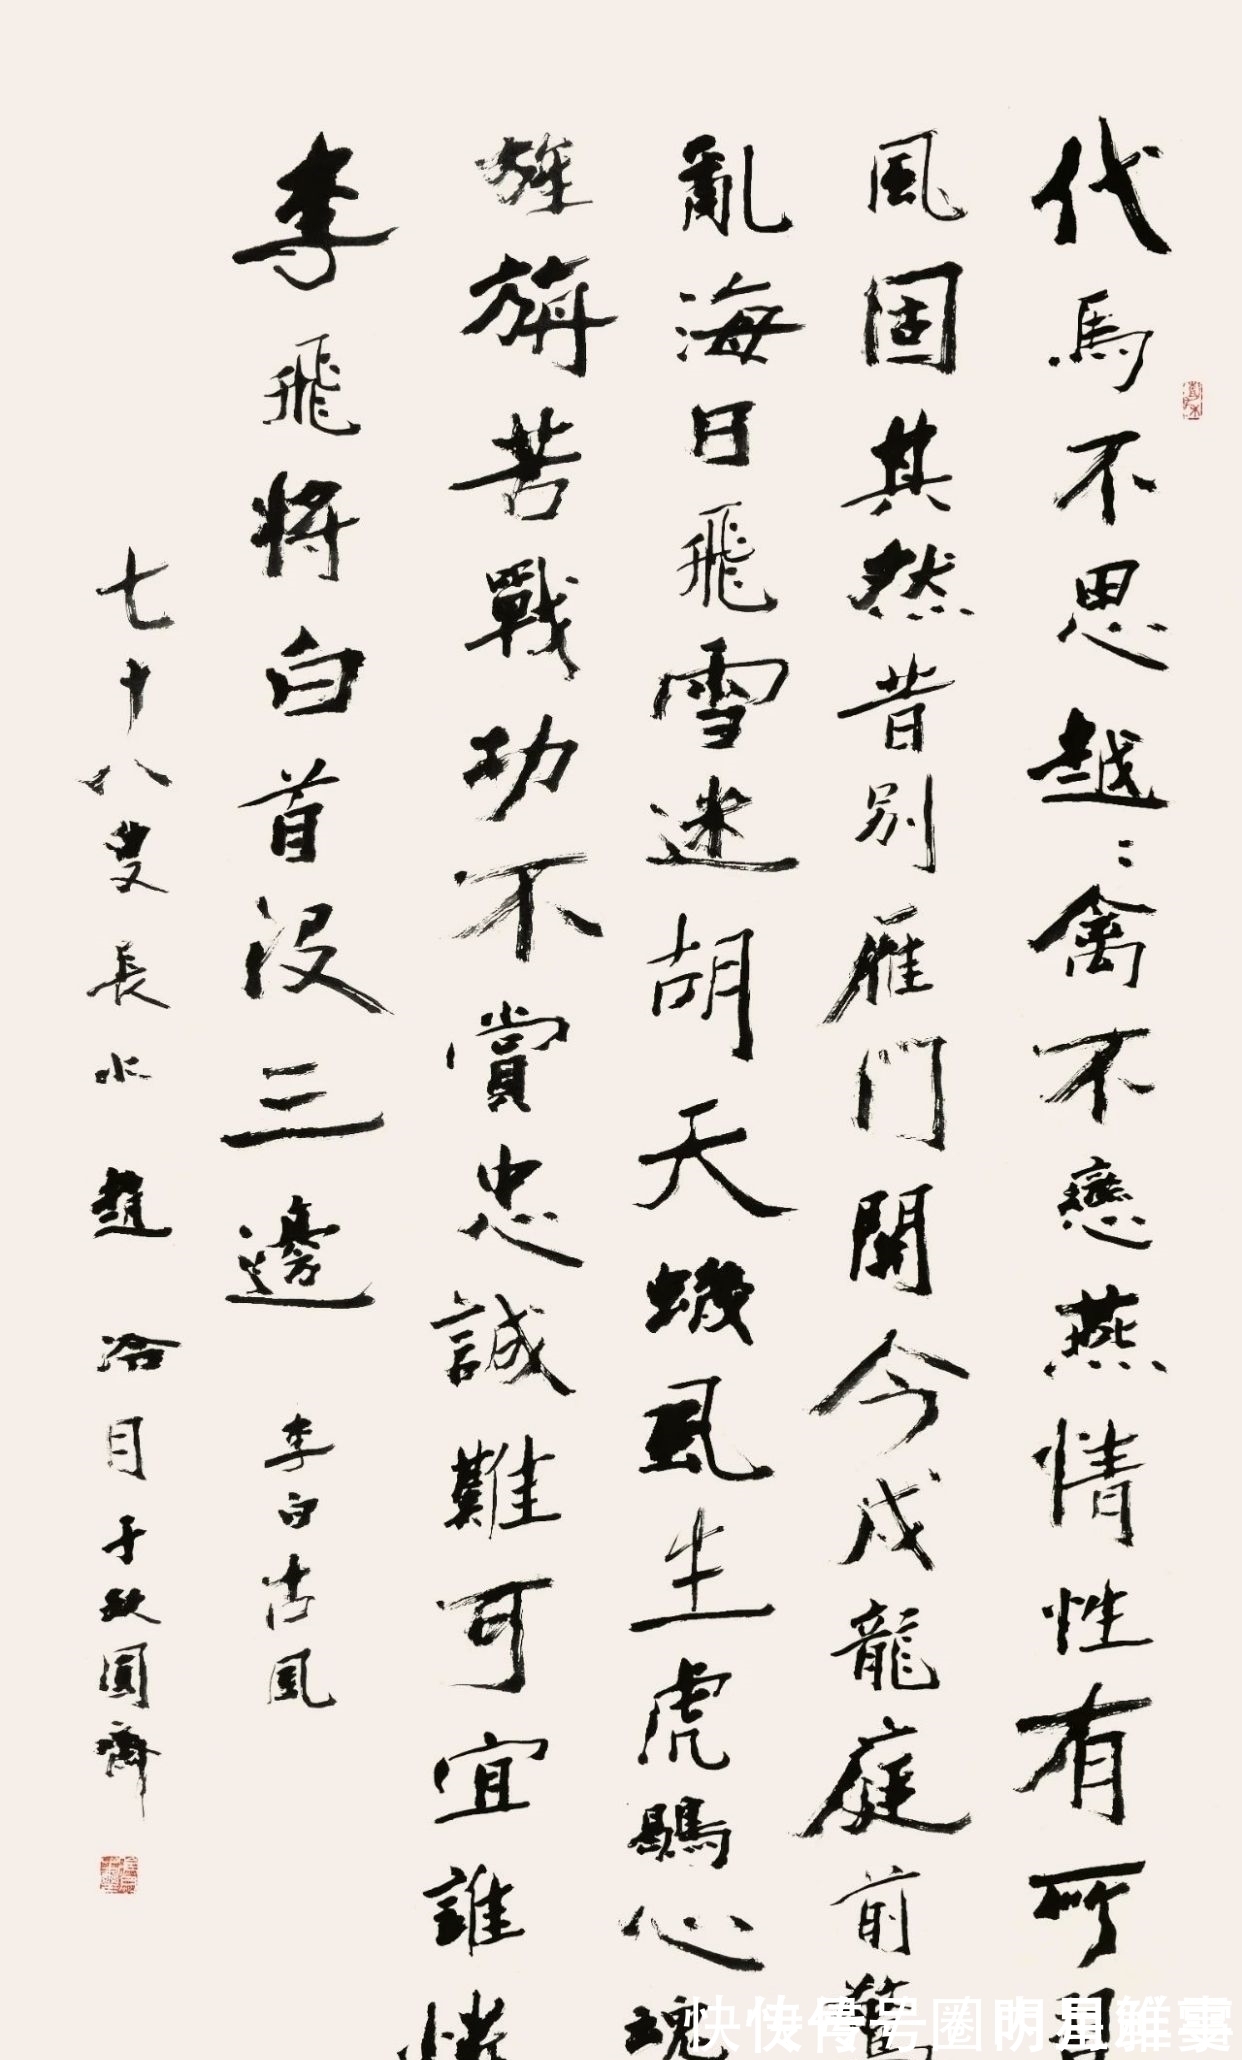 代馬不思越〻禽不戀燕情性有所習
風固其然昔別雁門關今戍龍庭前驚
亂海日飛雪迷胡天蟣虱生虎鶡心魂
旌旃苦戰功不賞忠誠難可宜誰憐
李飛將白首没三邊 李白古風
七十八叟長水趙冷月于秋圓齋